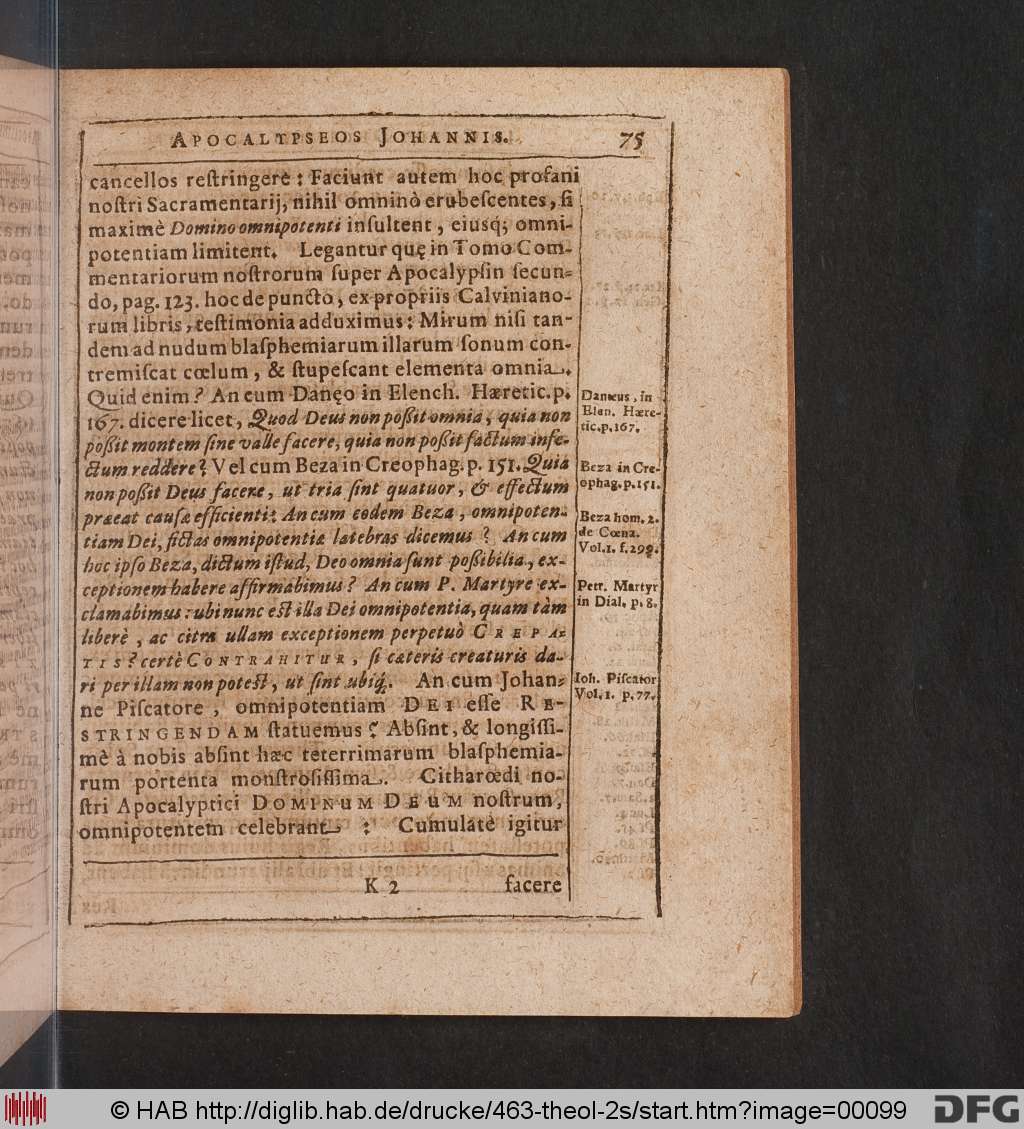 APOCALYPSEOS JOHANNIS. 75
cancellos reſtringerè : Faciunt autem hoc profani
noſtri Sacramentarij, nihil omninò erubeſcentes, ſi
maximè Domino omnipotenti inſultent, eiusq́; omni-
potentiam limitent. Legantur quę in Tomo Com-
mentariorum noſtrorum ſuper Apocalypſin ſecun-
do, pag. 123. hoc de puncto, ex propriis Calviniano-
rum libris, teſtimonia adduximus: Mirum niſi tan-
dem ad nudum blaſphemiarum illarum ſonum con-
tremiſcat cœlum, & ſtupeſcant elementa omnia.
Quid enim? An cum Danęo in Elench. Hæretic. p.
167. dicere licet, Quod Deus non poßit omnia, quia non
poßit montem ſine valle facere, quia non poßit factum infe-
ctum reddere? Vel cum Beza in Creophag. p. 151. Quia
non poßit Deus facere, ut tria ſint quatuor, & effectum
præeat cauſæ efficienti: An cum eodem Beza, omnipoten-
tiam Dei, fictas omnipotentiæ latebras dicemus? An cum
hoc ipſo Beza, dictum iſtud, Deo omnia ſunt poßibilia, ex-
ceptionem habere affirmabimus? An cum P. Martyre ex-
clamabimus: ubi nunc eſt illa Dei omnipotentia, quam tàm
liberè, ac citra ullam exceptionem perpetuò CREPA-
TIS? certè CONTRAHITUR, ſi cæteris creaturis da-
ri per illam non poteſt, ut ſint ubiq́. An cum Johan-
ne Piſcatore, omnipotentiam DEI eſſe RE-
STRINGENDAM ſtatuemus? Abſint, & longiſſi-
mè à nobis abſint hæc teterrimarum blaſphemia-
rum portenta monſtroſiſſima. Citharœdi no-
ſtri Apocalyptici DOMINUM DEUM noſtrum,
omnipotentem celebrant : Cumulatè igitur
K 2 facere
Danæus, in
Elen. Hære-
tic. p. 167.
Beza in Cre-
ophag. p. 151.
Beza hom. 2.
de Cœna.
Vol. 1. f. 299.
Petr. Martyr
in Dial. p. 8.
Ioh. Piſcator
Vol. 1. p. 77.
© HAB http://diglib.hab.de/drucke/463-theol-2s/start.htm?image=00099
DFG